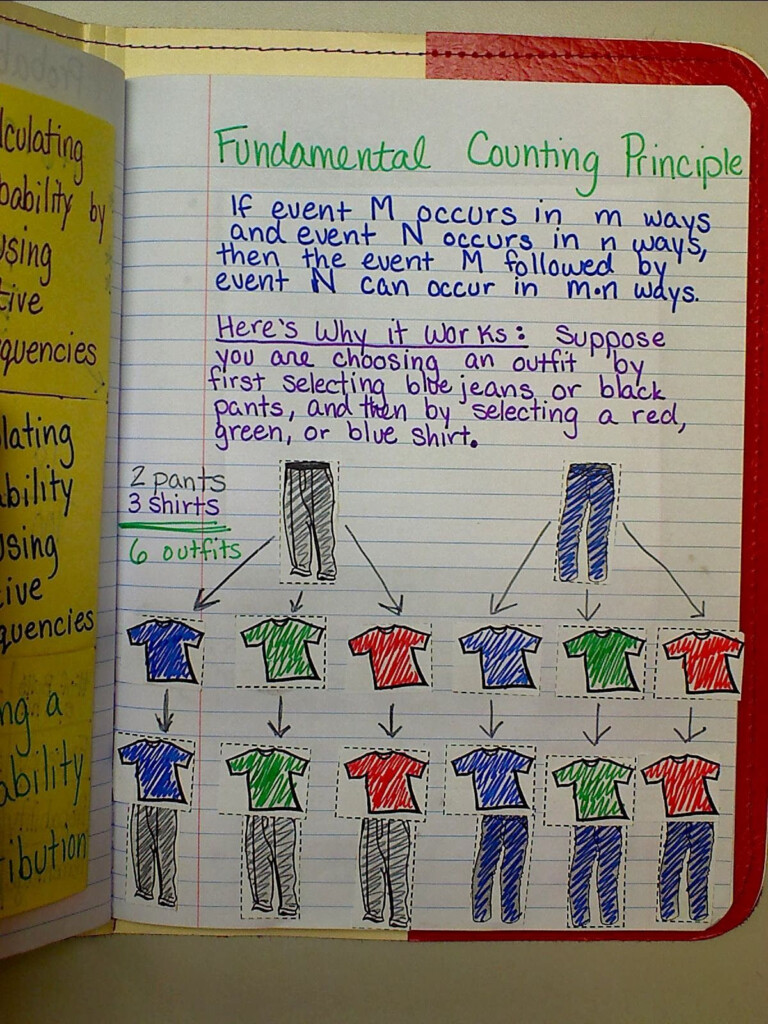 lculating
bability by
using
tive
quencies
lating
ability
using
ive
quencies
ng a
ability
ribution
Fundamental Counting Principle
If event M occurs in m ways
and event N occurs in n ways,
then the event M followed by
event N can occur in m·n ways.
Here's Why it Works: Suppose
you are choosing an outfit by
first selecting blue jeans or black
pants, and then by selecting a red,
green, or blue shirt.
2 pants
3 shirts
6 outfits